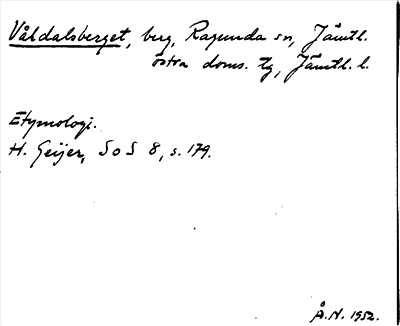 Våldalsberget, berg, Ragunda sn, Jämtl.
östra doms. tg, Jämtl. l.
Etymologi.
H. Geijer, SoS 8, s. 179.
Å.N. 1952.